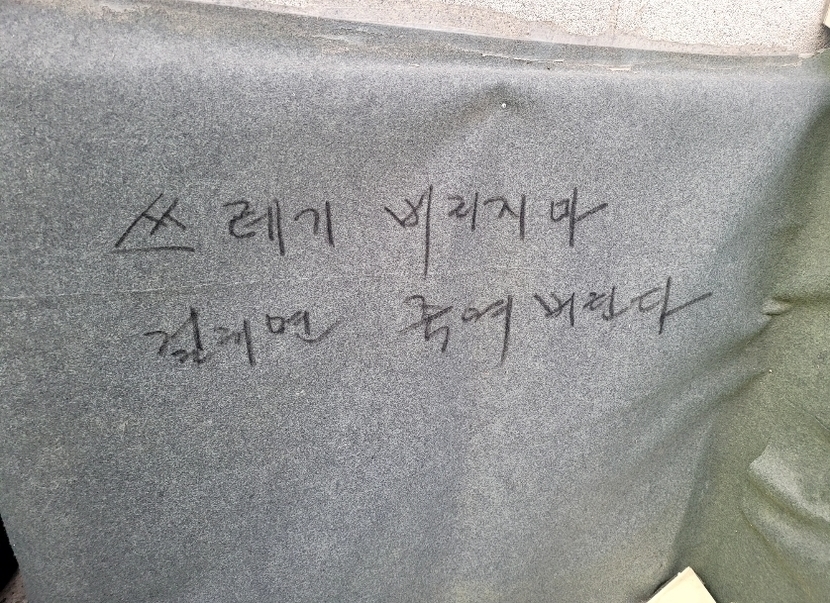 쓰레기 버리지마
걸리면 죽여버린다